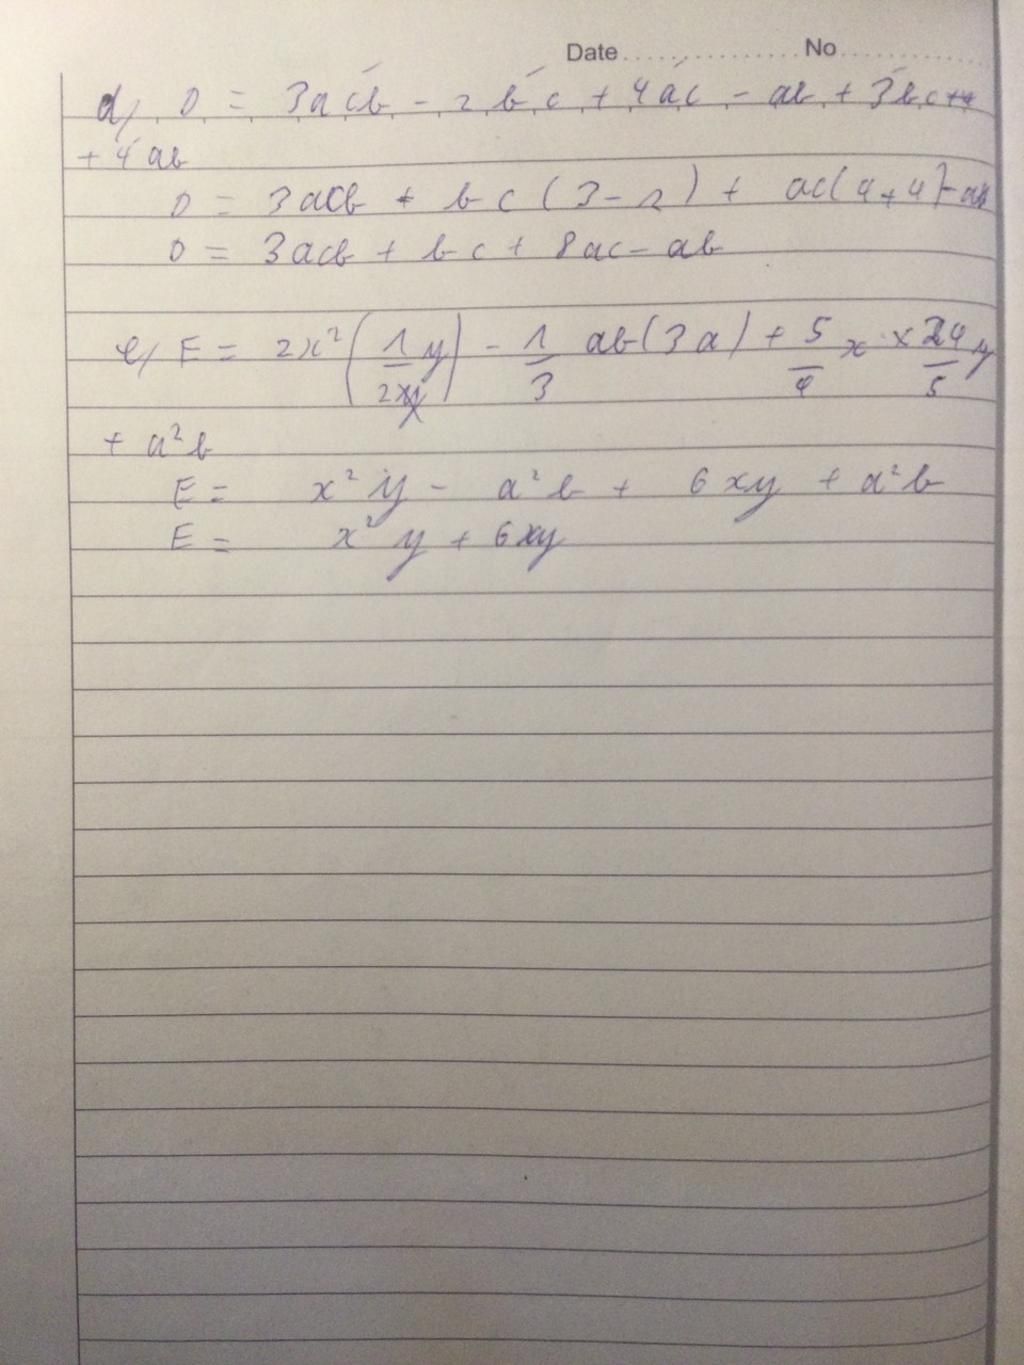 Date.................No.................
d/ D = 3acb - 2bc + 4ac - ab + 3bc +
+ 4ab
D = 3acb + bc(3-2) + ac(4+4)-ab
D = 3acb + bc + 8ac - ab
e/ E = 2x²(1/2 y) - 1/3 ab(3a) + 5/4 x × 24/5 y
+ a²b
E = x²y - a²b + 6xy + a²b
E = x²y + 6xy